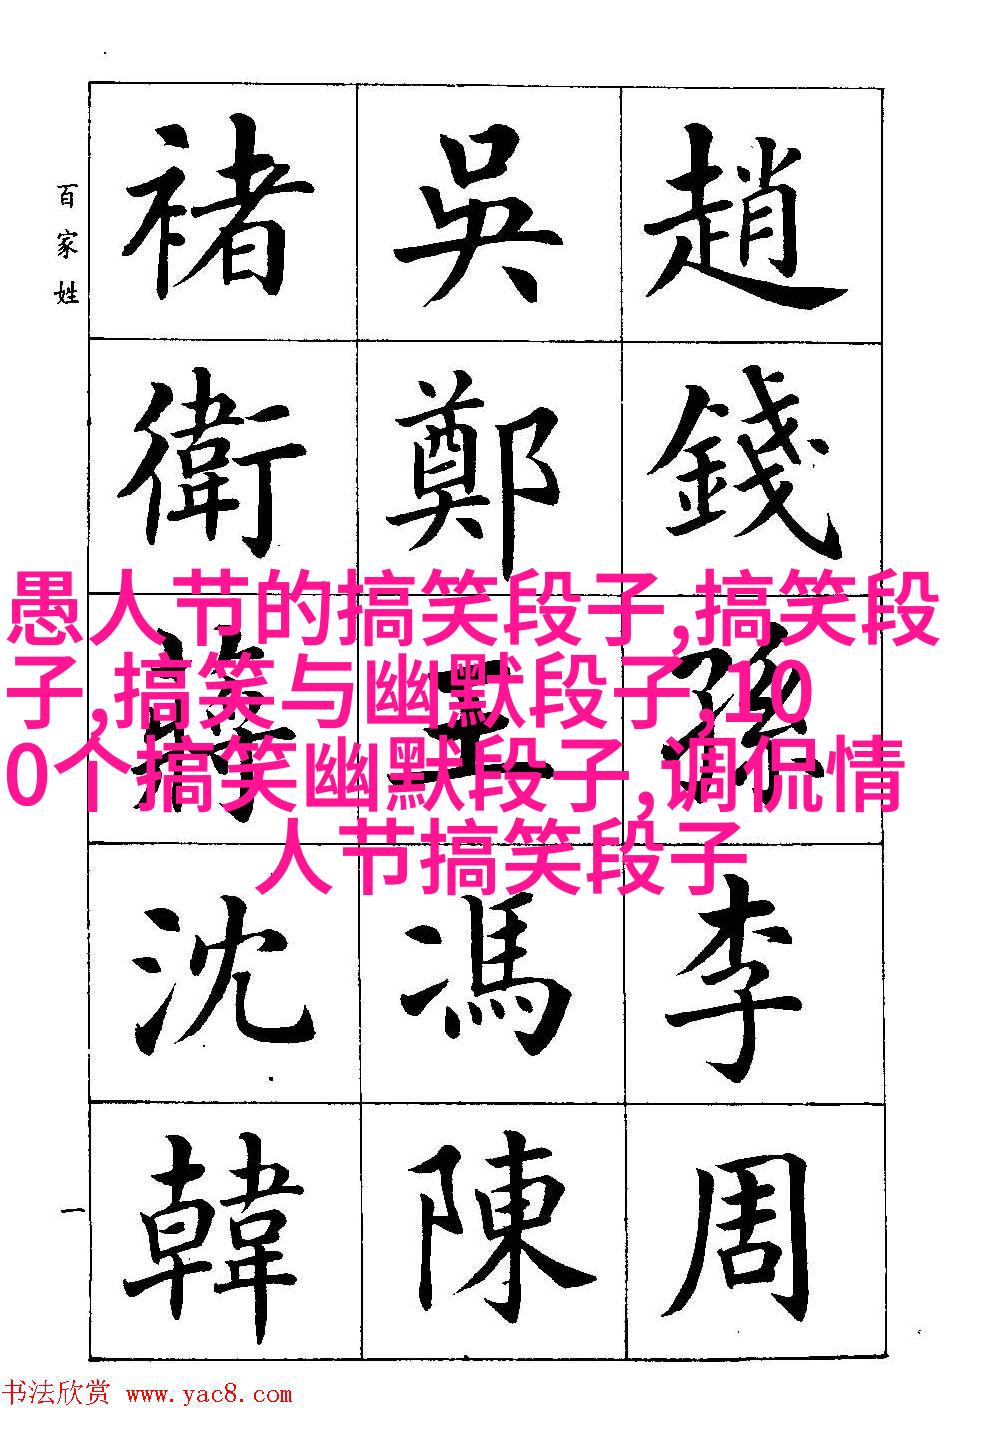 百家姓
趙錢孫李周
吳鄭王馮陳
褚衛蔣沈韓
一
愚人节的搞笑段子,搞笑段
子,搞笑与幽默段子,10
0个搞笑幽默段子,调侃情
人节搞笑段子
书法欣赏 www.yac8.com